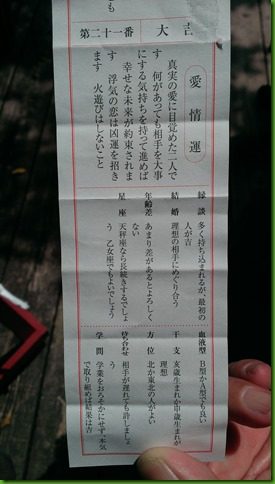 も
第二十一番
大吉
愛情運
真実の愛に目覚めた二人で
す 何があっても相手を大事
にする気持ちを持って進めば
幸せな未来が約束されま
す 浮気の恋は凶運を招き
ます 火遊びはしないこと
縁談 多く持ち込まれるが、最初の
人が吉
結婚 理想の相手にめぐり合う
年齢差 あまり差があるとよろしく
ない
星座 天秤座なら長続きするでしょ
う 乙女座でもよいでしょう
血液型 B型かA型でも良い
干支 亥歳生まれか申歳生まれが
理想
方位 北か東北の人がよい
待合わせ 相手が遅れても許しましょ
う
学問 学業をおろそかにせず、本気
で取り組めば結果は吉